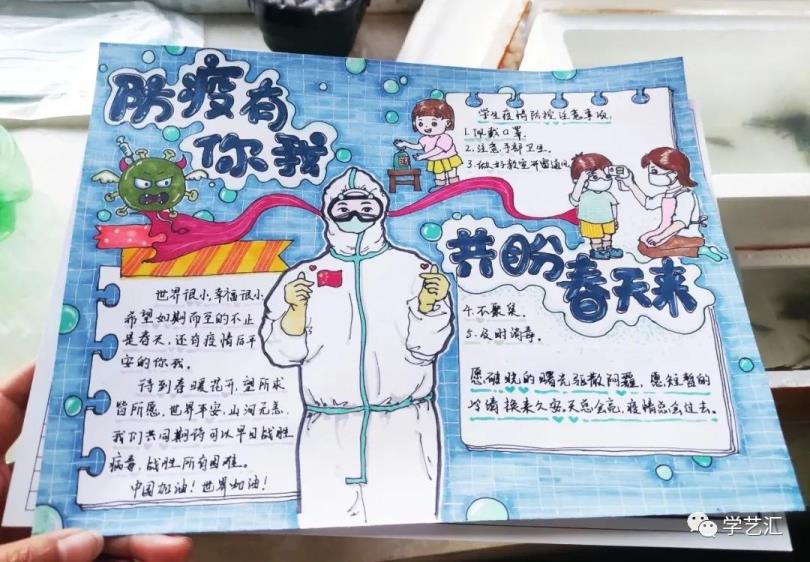 防疫有
你我
学生疫情防控注意事项
1.佩戴口罩。
2.注意手部卫生。
3.做好教室开窗通风
共盼
春天来
4.不聚集。
5.及时消毒。
愿破晓的曙光驱散阴霾,愿短暂的
冷清换来久安,天总会亮,疫情总会过去。
世界很小,幸福很小
希望如期而至的不止
是春天,还有疫情后平
安的你我。
待到春暖花开,望所求
皆所愿,世界平安,山河无恙,
我们共同期待可以早日战胜
病毒,战胜所有困难。
中国加油!世界加油!
学艺汇